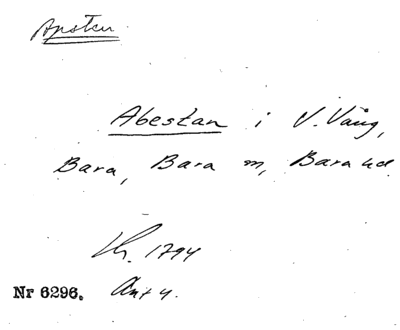 Apsten
Abestan i V. Vång,
Bara, Bara sn, Bara hd.
Lh. 1794
Nr 6296. Ant 4.